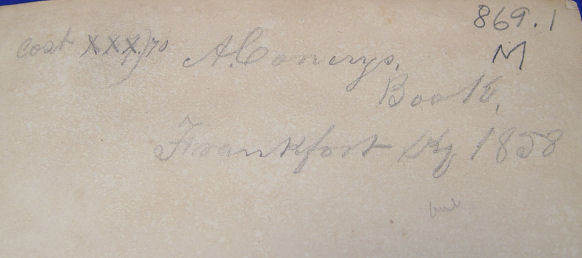 869.1
M
cost XXX
A. Conery's.
Book,
Frankfort Ky 1858